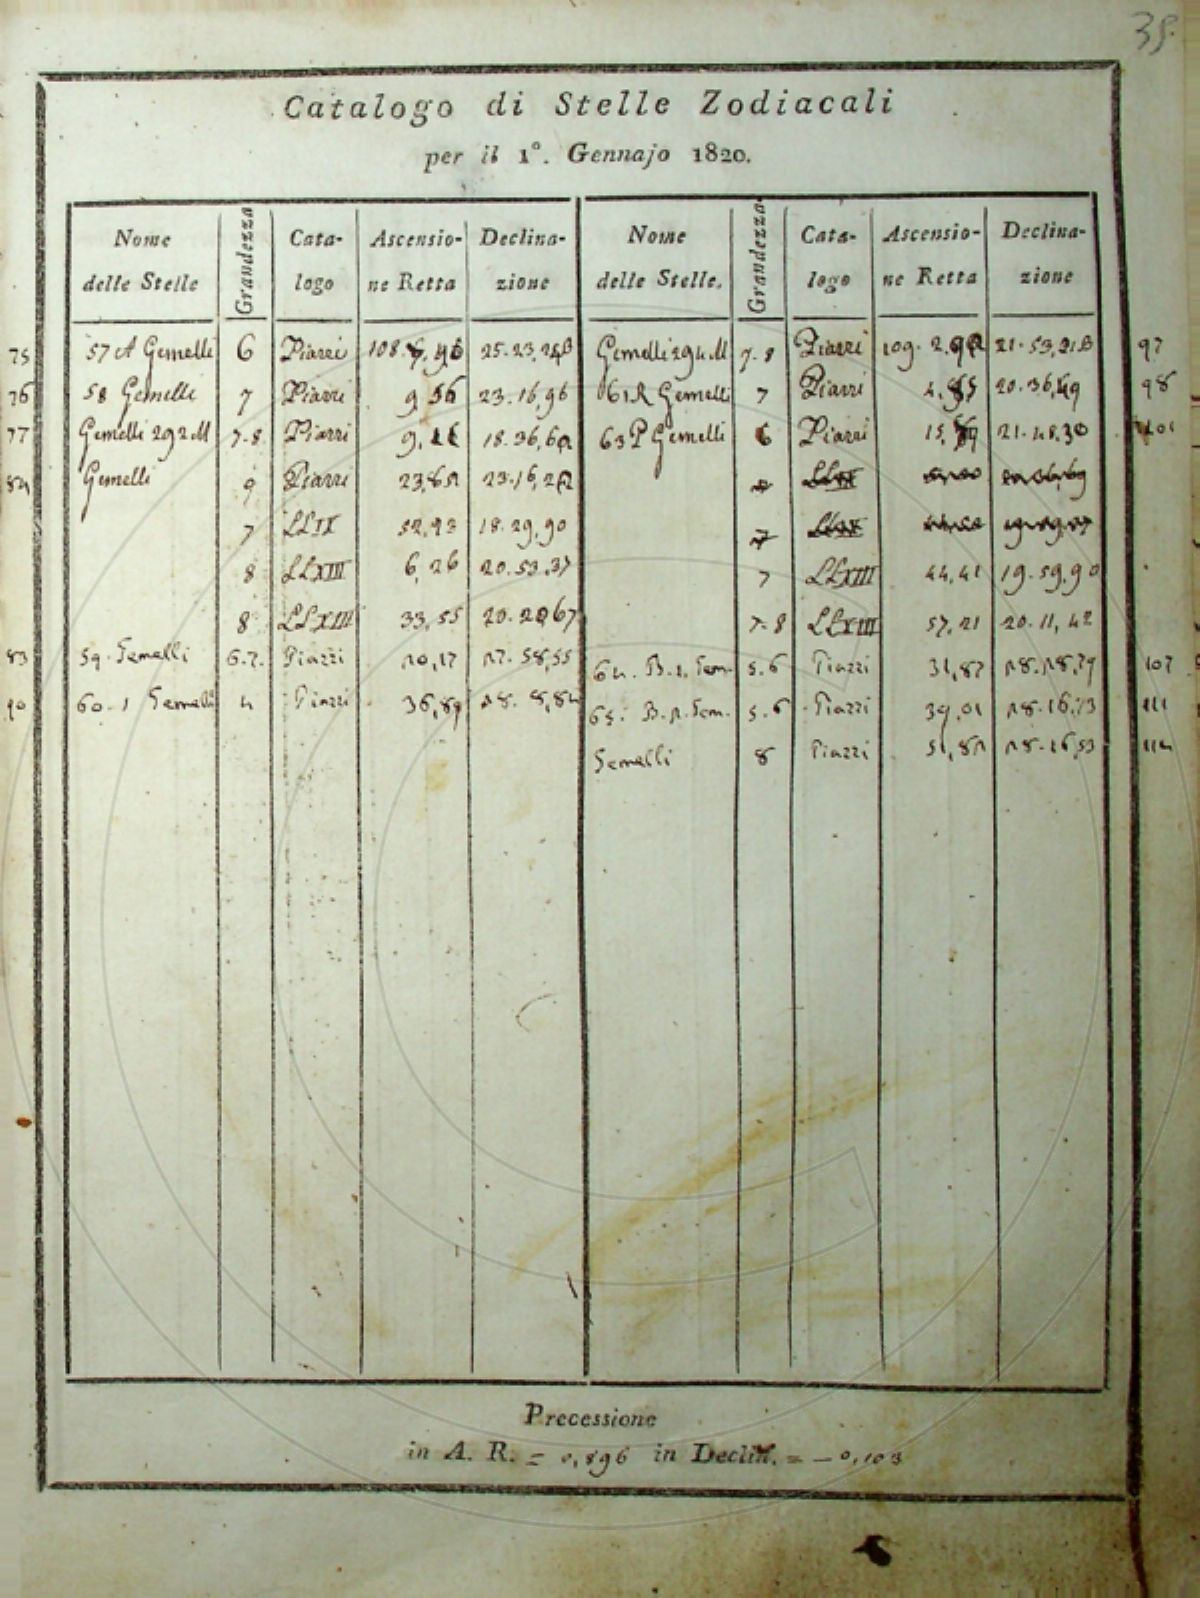 35.
Catalogo di Stelle Zodiacali
per il 1°. Gennajo 1820.
Nome delle Stelle Grandezza Cata-logo Ascensio-ne Retta Declina-zione Nome delle Stelle. Grandezza Cata-logo Ascensio-ne Retta Declina-zione
75 57 A Gemelli 6 Piazzi 108. 25.23, Gemelli 294 M 7.8 Piazzi 109. 2. 21.53, 97
76 58 Gemelli 7 Piazzi 9,56 23.16,96 61 R Gemelli 7 Piazzi 20.36,49 98
77 Gemelli 292 M 7.8 Piazzi 9, 18.36, 63 P Gemelli 6 Piazzi 15, 21.48,30
Gemelli 9 Piazzi 23.16,
7 LLIX 52,93 18.29,90
8 LLXIII 6,26 20.53,37 7 LLXIII 44,41 19.59,90
8 LLXIII 33,55 20. 67 7.8 LLXIII 57,21 20.11,42
83 59. Gemelli 6.7. Piazzi 10,17 17.58,55 64. Gem. 5.6 Piazzi 31,87 18.18,79 107
90 60. Gemelli 4 Piazzi 36,89 18. 8,84 65. Gem. 5.6 Piazzi 39,01 18.16,73 111
Gemelli 8 Piazzi 51,81 18.26,53 114
Precessione
in A. R. = 0,896 in Declin. = - 0,103